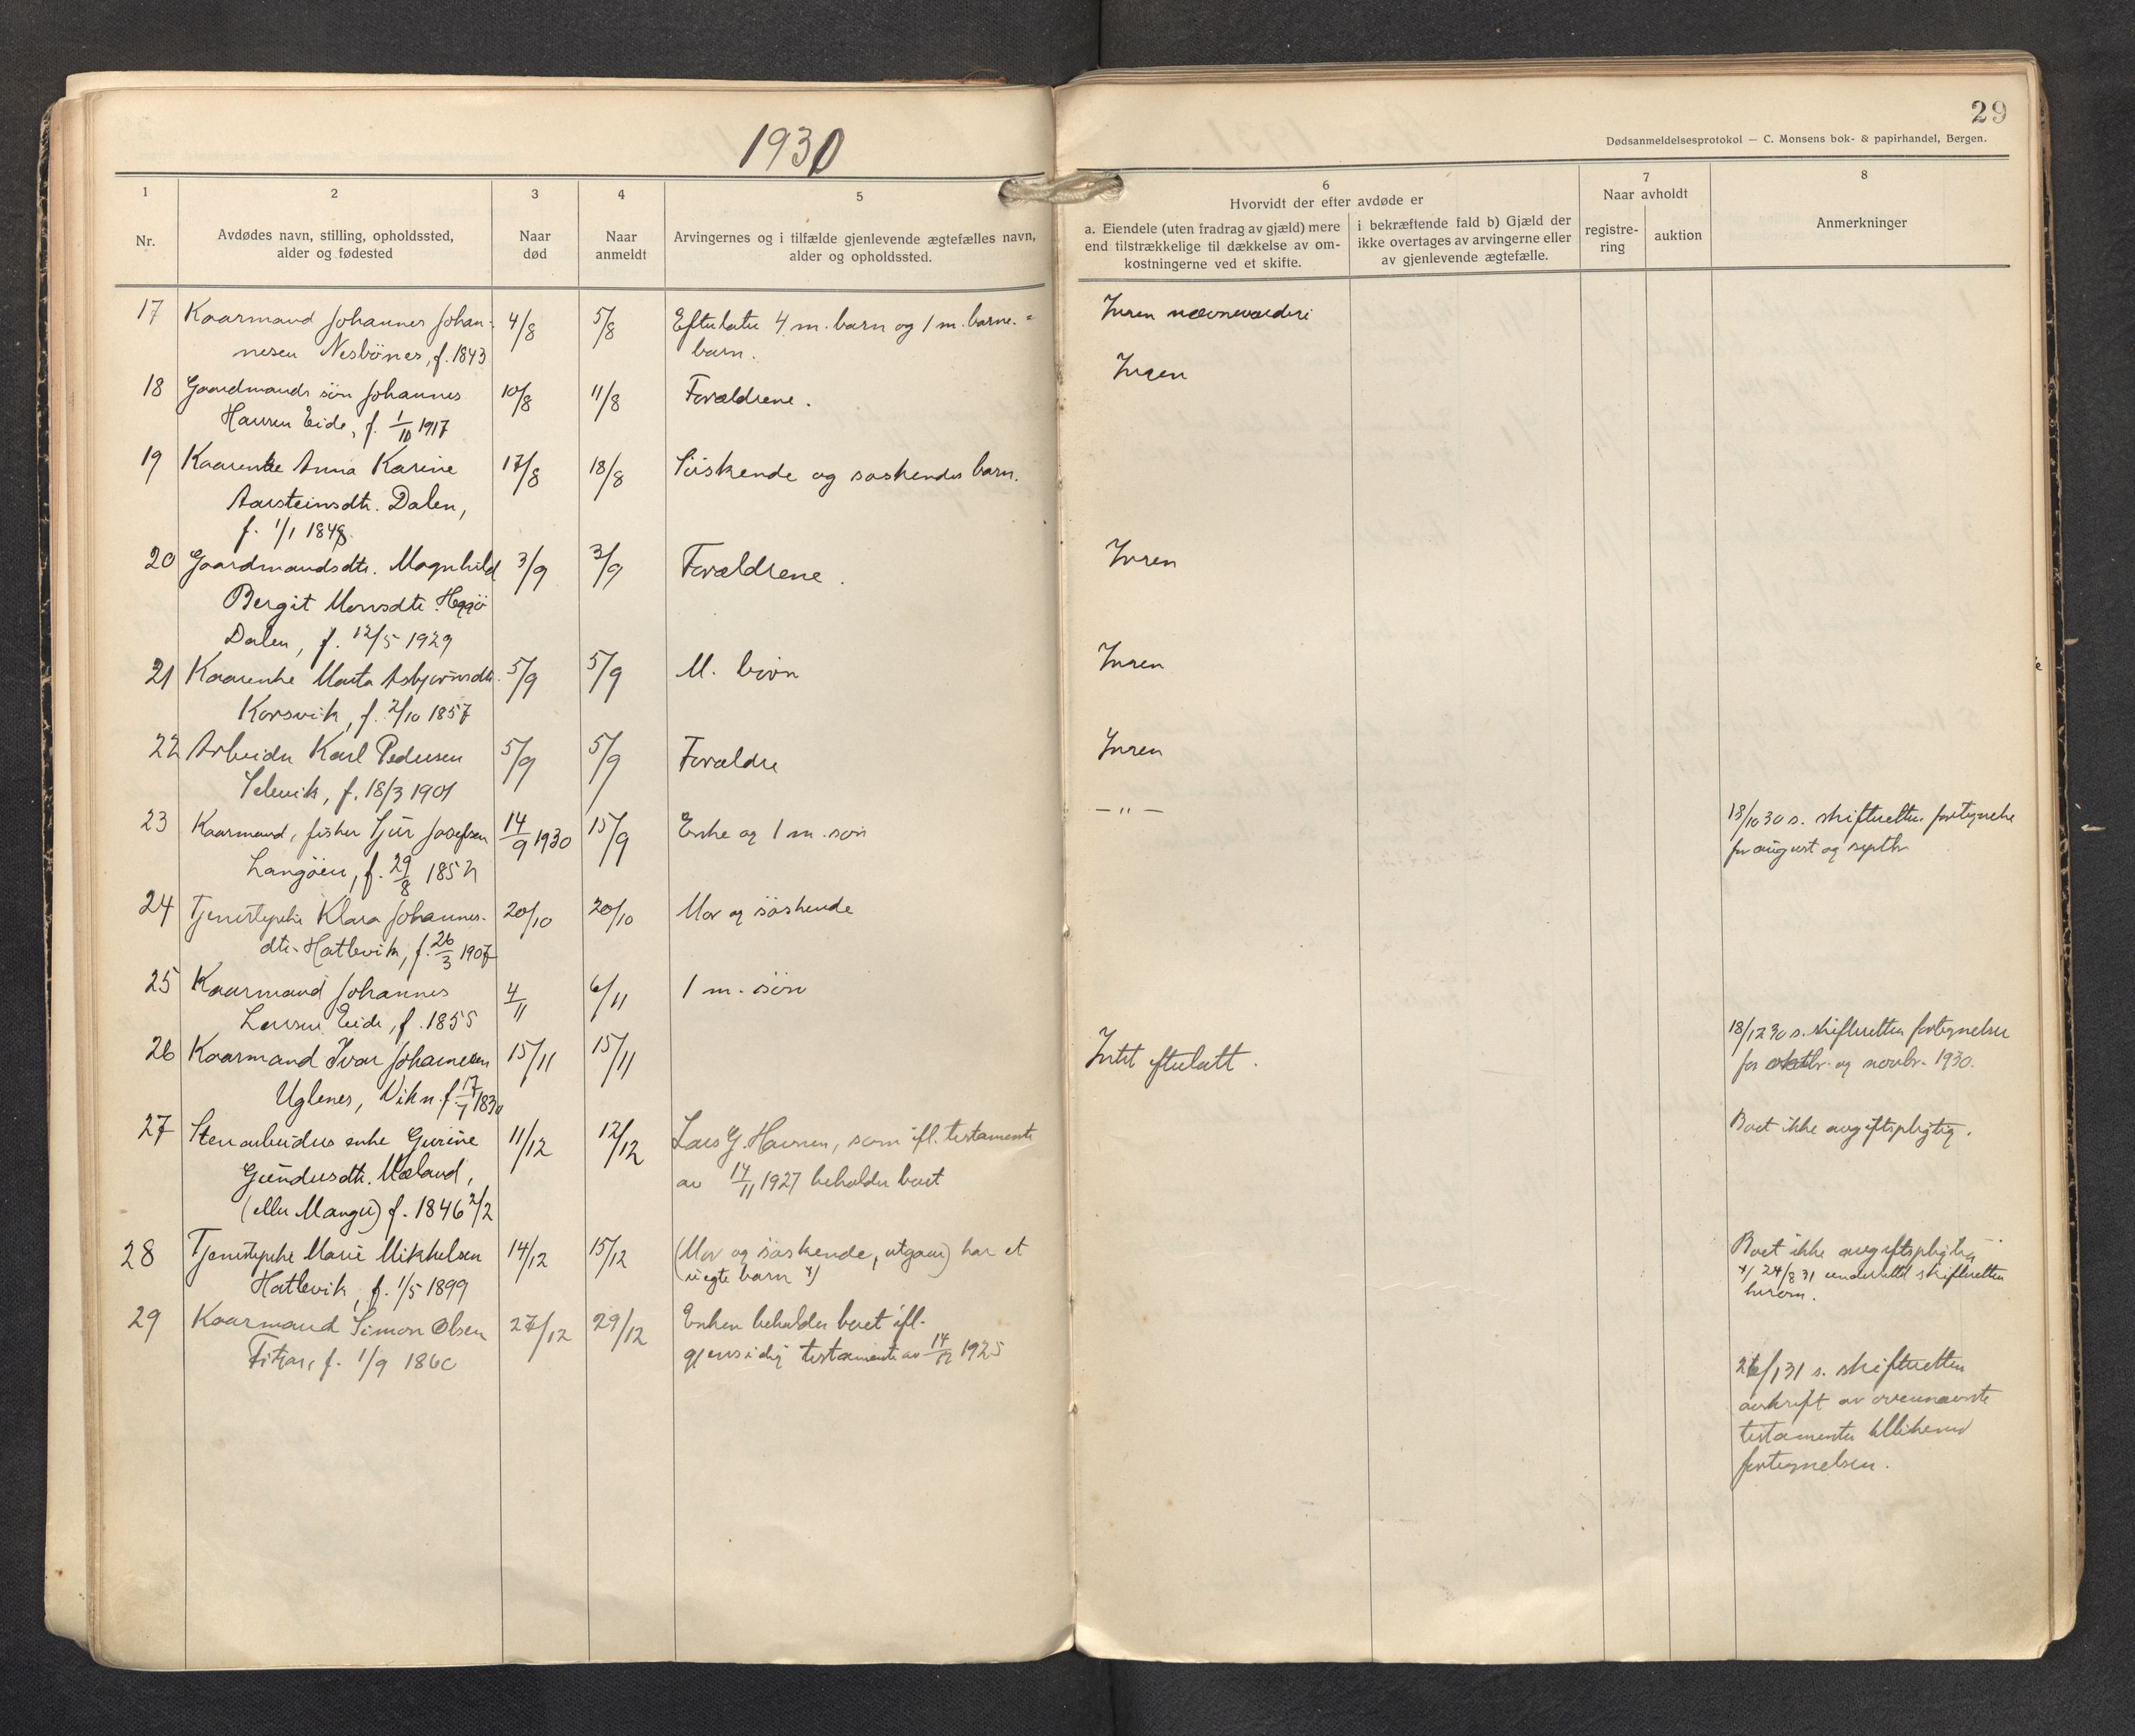 1930
29
Dødsanmeldelsesprotokol — C. Monsens bok- & papirhandel, Bergen.
1
2
3
4
5
6
7
8
Nr.
Avdødes navn, stilling, opholdssted,
alder og fødested
Naar
død
Naar
anmeldt
Arvingernes og i tilfælde gjenlevende ægtefælles navn,
alder og opholdssted.
Hvorvidt der efter avdøde er
a. Eiendele (uten fradrag av gjæld) mere
end tilstrækkelige til dækkelse av om-
kostningerne ved et skifte.
i bekræftende fald b) Gjæld der
ikke overtages av arvingerne eller
av gjenlevende ægtefælle.
Naar avholdt
registre-
ring
auktion
Anmerkninger
17 Kaarmand Johannes Johan- 4/8 5/8 Efterlater 4 m. barn og 1 m. barne- Ingen nævneværdig
nesen Nesbönes, f. 1843 barn.
18 Gaardmands sön Johannes 10/8 11/8 Forældrene. Ingen
Hansen Eide, f. 1/10 1917
19 Kaarenke Anna Karine 17/8 18/8 Söskende og söskendes barn.
Aarsteinsdtr. Dalen,
f. 1/1 1848.
20 Gaardmandsdtr. Magnhild 3/9 3/9 Forældrene. Ingen
Bergit Monsdtr. Heggö
Dalen, f. 12/5 1929
21 Kaarenke Marta Asbjörnsdtr. 5/9 5/9 M. börn Ingen
Korsvik, f. 2/10 1857
22 Arbeider Karl Pedersen 5/9 5/9 Forældre Ingen
Selevik, f. 18/3 1901
23 Kaarmand, fisker Sjur Josefsen 14/9 1930 15/9 Enke og 1 m. sön — " — 13/10 30 s. skifteretten fortegnelse
Langöen, f. 29/8 185 for august og septbr
24 Tjenestepike Klara Johannes- 20/10 20/10 Mor og söskende
dtr. Hatlevik, f. 26/3 1907
25 Kaarmand Johannes 4/11 6/11 1 m. sön
Larsen Eide, f. 1855
26 Kaarmand Ivar Johannesen 15/11 15/11 Intet efterlatt. 18/12 30 s. skifteretten fortegnelse
Uglenes, Vikn f. 17/7 1830 for oktbr. og novbr. 1930.
27 Stenarbeiders enke Gurine 11/12 12/12 Lars G. Hansen, som ifl. testamente Boet ikke avgiftspligtig.
Gundersdtr. Mæland, av 14/11 1927 beholder boet
(eller Manger) f. 1846 2/2
28 Tjenestepike Marie Mikkelsen 14/12 15/12 (Mor og söskende, utgaar) har et Boet ikke avgiftspligtig
Hatlevik, f. 1/5 1899 uegte barn x) x) 24/8 31 underrettet skifteretten
herom.
29 Kaarmand Simon Olsen 27/12 29/12 Enken beholder boet ifl.
Fitjar, f. 1/9 1860 gjensidig testamente av 14/12 1925
26/1 31 s. skifteretten
avskrift av ovennævnte
testamente tillikemed
fortegnelsen.